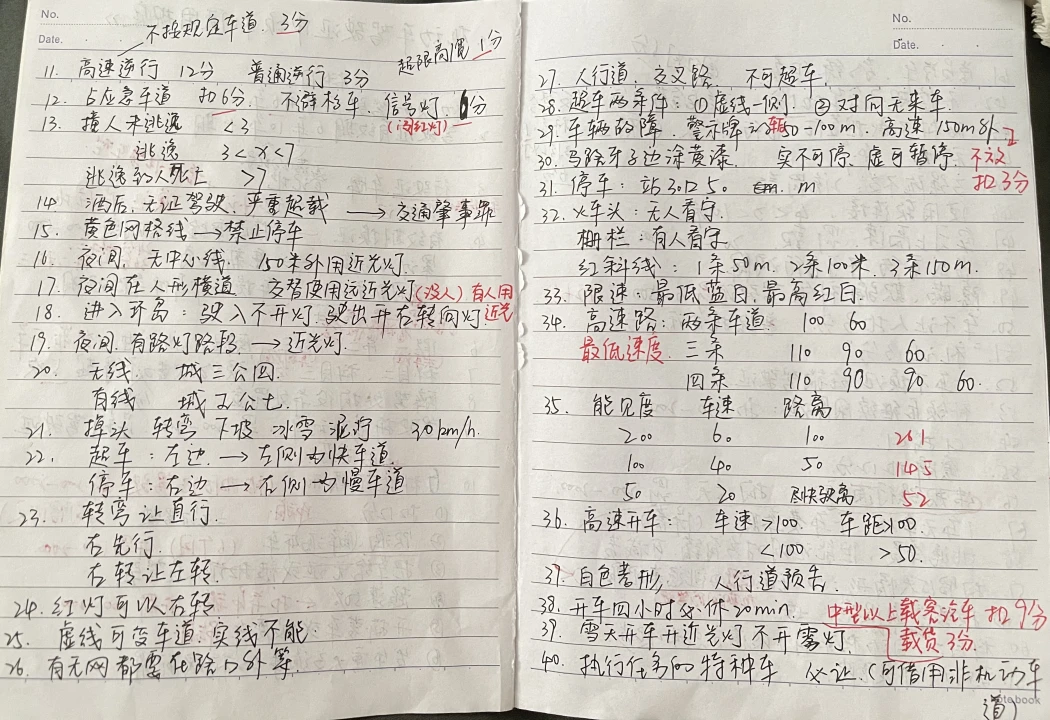 No.
Date.
不按规定车道 3分
超限高宽 1分
11. 高速逆行 12分 普通逆行 3分
12. 占应急车道 扣6分. 不避校车. 信号灯 6分
(闯红灯)
13. 撞人未逃逸 <3
逃逸 3<x<7
逃逸致人死亡 >7
14 酒后. 无证驾驶. 严重超载 → 交通肇事罪
15. 黄色网格线→禁止停车
16. 夜间. 无中心线. 150米外用近光灯.
17. 夜间在人形横道 交替使用远近光灯(没人) 有人用近光
18. 进入环岛: 驶入不开灯. 驶出开右转向灯
19. 夜间. 有路灯路段. → 近光灯.
20. 无线. 城三公四.
有线 城五公七.
21. 掉头 转弯 下坡 冰雪 泥泞 30km/h.
22. 超车: 左边. → 左侧为快车道.
停车: 右边 → 右侧为慢车道
23. 转弯让直行.
右先行.
右转让左转.
24. 红灯可以右转
25. 虚线可变车道. 实线不能.
26. 有无网都要在路口外等.
No.
Date.
27. 人行道. 交叉路. 不可超车.
28. 超车两条件: ①虚线一侧. ②对向无来车.
29. 车辆故障. 警示牌 50-100m. 高速 150m外
30. 马路牙子边涂黄漆. 实不可停. 虚可暂停.
扣3分
31. 停车: 站30口50 m
32. 火车头: 无人看守.
栅栏: 有人看守.
红斜线: 1条50m. 2条100米. 3条150m.
33. 限速: 最低蓝白. 最高红白.
34. 高速路: 两条车道. 100 60
最低速度. 三条 110 90 60
四条 110 90 90 60.
35. 能见度 车速 距离
200 60 100 261
100 40 50 145
50 20 尽快驶离 52
36. 高速开车: 车速>100. 车距>100
<100 >50.
37. 白色菱形. 人行道预告.
38. 开车四小时必休20min. 中型以上载客汽车 扣9分
载货3分.
39. 雪天开车开近光灯 不开雾灯.
40. 执行任务的特种车 必让. (可借用非机动车道)
notebook